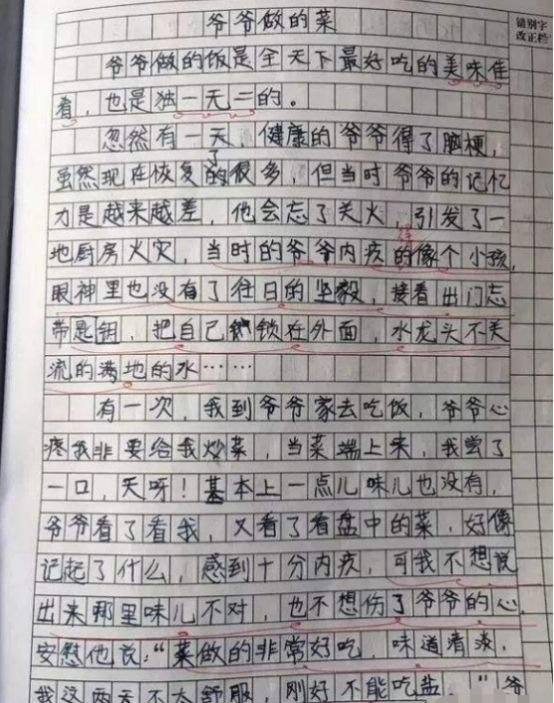 错别字
改正栏
爷爷做的菜
爷爷做的饭是全天下最好吃的美味佳
肴,也是独一无二的。
忽然有一天,健康的爷爷得了脑梗,
虽然现在恢复了很多,但当时爷爷的记忆
力是越来越差,他会忘了关火,引发了一
地厨房火灾,当时的爷爷内疚得像个小孩,
眼神里也没有了往日的坚毅,接着出门忘
带匙钥,把自己锁在外面,水龙头不关
流的满地的水……
有一次,我到爷爷家去吃饭,爷爷心
疼我非要给我炒菜,当菜端上来,我尝了
一口,天呀!基本上一点儿味儿也没有,
爷爷看了看我,又看了看盘中的菜,好像
记起了什么,感到十分内疚,可我不想说
出来那里味儿不对,也不想伤了爷爷的心,
安慰他说:“菜做的非常好吃,味道清淡,
我这两天不太舒服,刚好不能吃盐。”爷